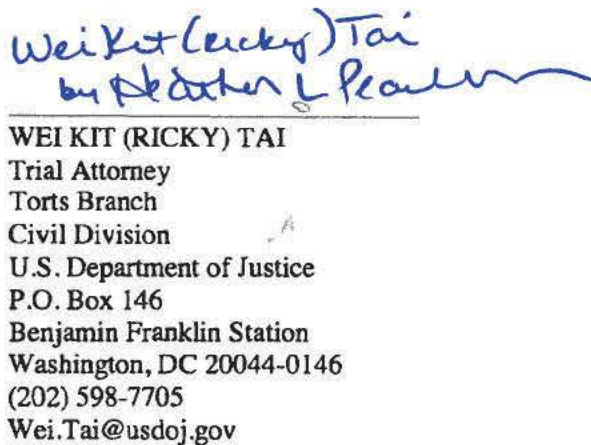 Wei Kit (Ricky) Tai
by Heather L Pearlman
WEI KIT (RICKY) TAI
Trial Attorney
Torts Branch
Civil Division
U.S. Department of Justice
P.O. Box 146
Benjamin Franklin Station
Washington, DC 20044-0146
(202) 598-7705
Wei.Tai@usdoj.gov